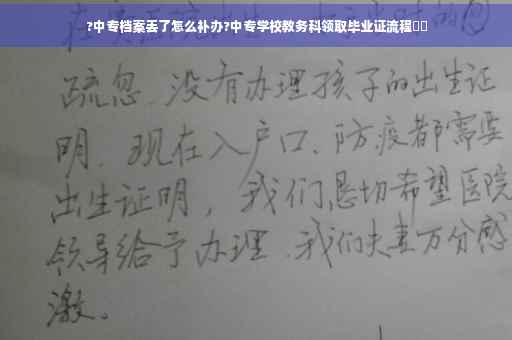 ?中专档案丢了怎么补办?中专学校教务科领取毕业证流程
疏忽、没有办理孩子的出生证
明、现在入户口、防疫都需要
出生证明，我们恳切希望医院
领导给予办理、我们夫妻万分感
激。